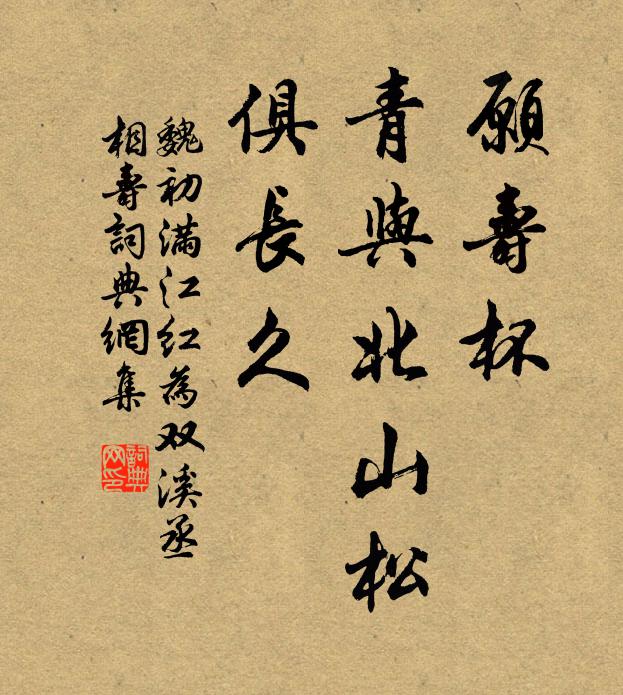 願壽杯
青與北山松
俱長久
魏初滿江红為双溪丞
相壽詞典網集
詞典网印